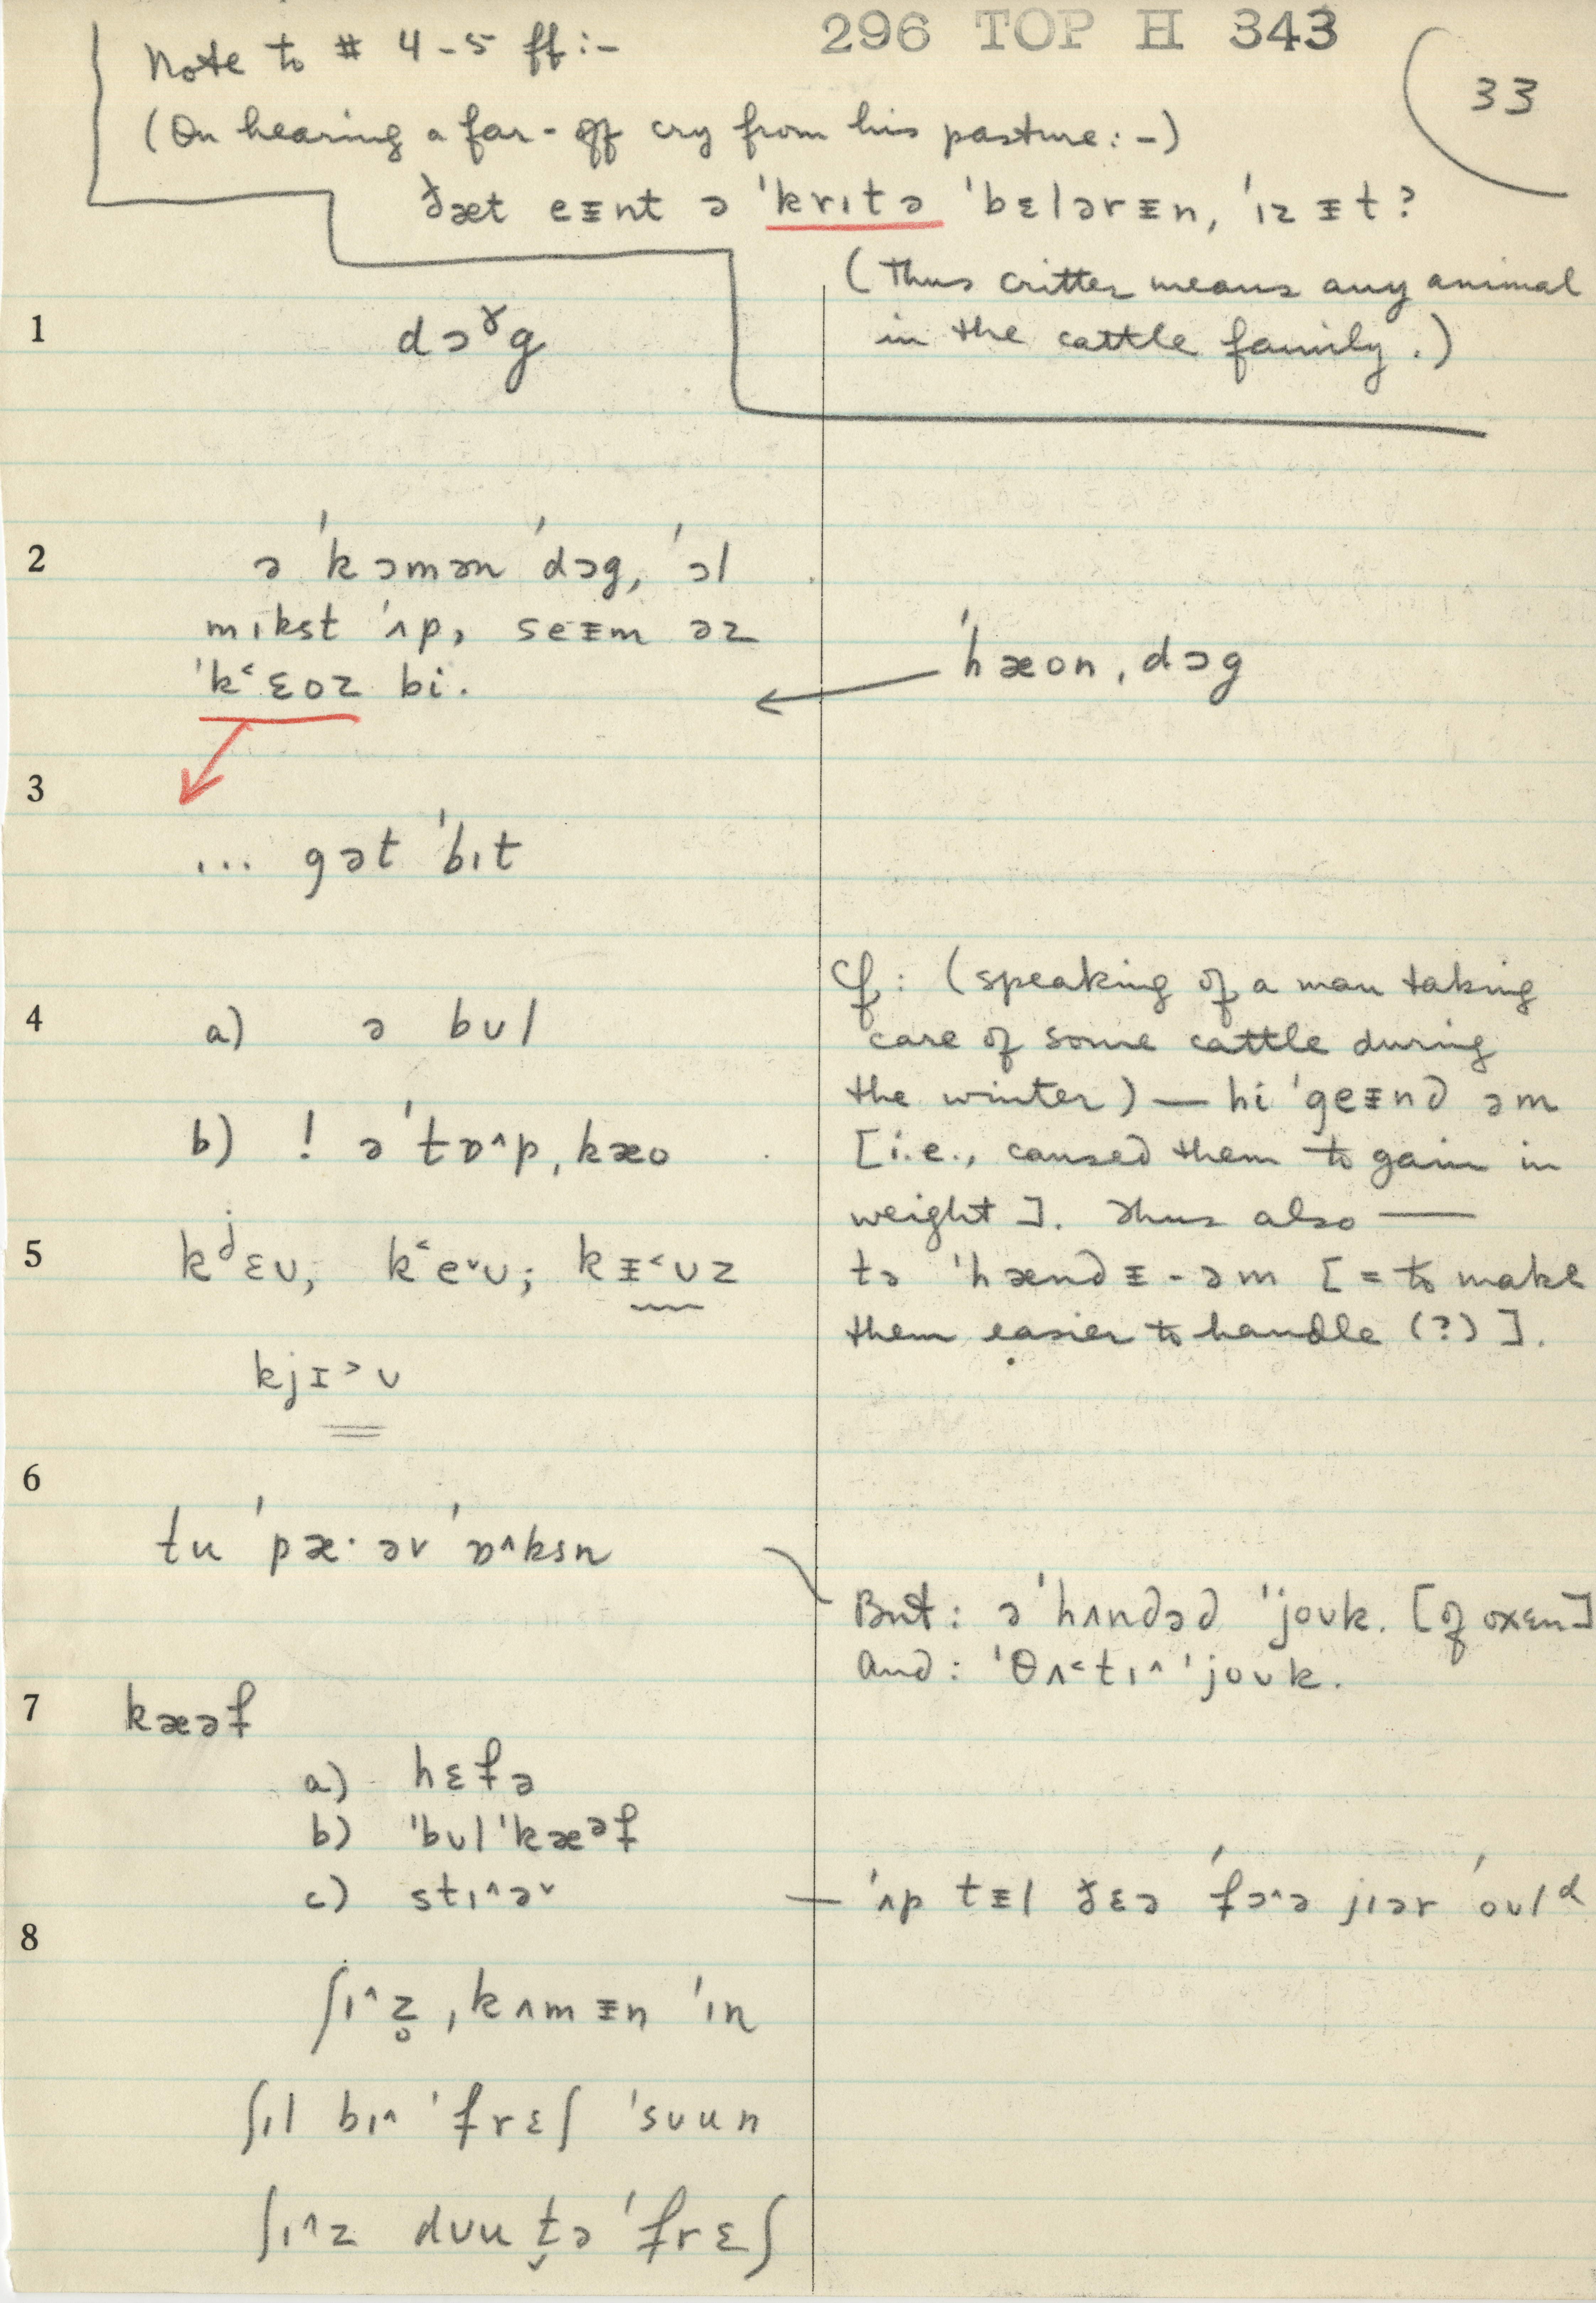 296 TOP H 343
33
Note to # 4-5 ff:-
(On hearing a far-off cry from his pasture:-)
ðæt eᵻnt ə 'krɪtə 'bɛlərᵻn, 'ɪz ᵻt?
(Thus critter means any animal
in the cattle family.)
1
dɔˠg
2
ə 'kɔmən 'dɔg, 'ɔl
mɪkst 'ʌp, seᵻm əz
'k˂ɛoz bi.
'hæon ˌdɔg
3
... gət 'bɪt
4
a) ə bʊl
b) ! ə 'tɒ^p ˌkæo
Cf: (speaking of a man taking
care of some cattle during
the winter) — hi 'geᵻnd əm
[i.e., caused them to gain in
weight]. Thus also —
tə 'hændᵻ-əm [= to make
them easier to handle (?)].
5
kʲɛʊ, k˂e˅ʊ; kᵻ˂ʊz
kjɪ˃ʊ
6
tu 'pæ·ər 'ɒ^ksn
But: ə 'hʌndəd 'joʊk. [of oxen]
And: 'θʌ˂tɪ^ 'joʊk.
7
kæəf
a) hɛfə
b) 'bʊl 'kæᵊf
c) stɪ^ə˅
— 'ʌp tᵻl ðɛə 'fɔ^ə jɪər 'oʊlᵈ
8
ʃɪ^z̥ ˌkʌmᵻn 'ɪn
ʃɪl bɪ^ 'frɛʃ 'sʊun
ʃɪ^z dʊu t̬ə 'frɛʃ